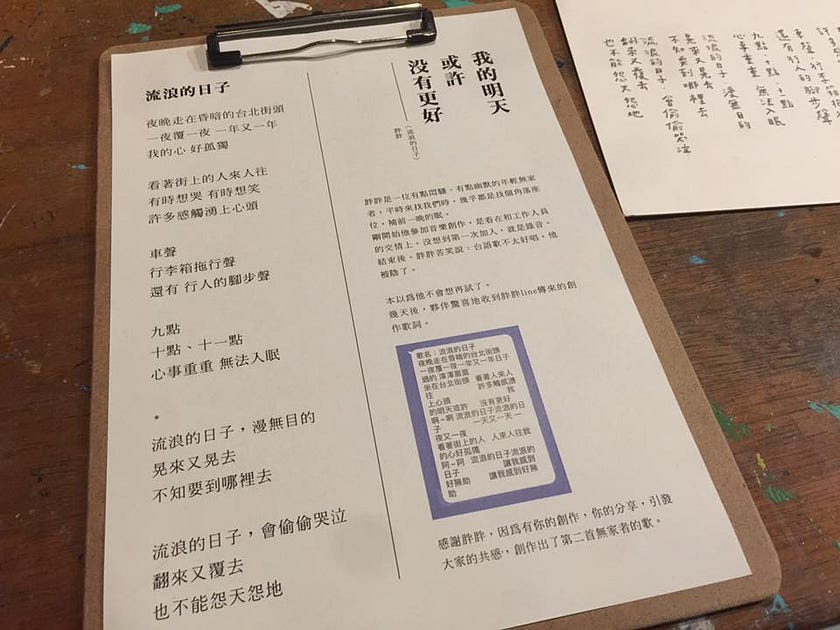 流浪的日子
夜晚走在昏暗的台北街頭
一夜覆一夜 一年又一年
我的心 好孤獨
看著街上的人來人往
有時想哭 有時想笑
許多感觸湧上心頭
車聲
行李箱拖行聲
還有 行人的腳步聲
九點
十點、十一點
心事重重 無法入眠
*
流浪的日子，漫無目的
晃來又晃去
不知要到哪裡去
流浪的日子，會偷偷哭泣
翻來又覆去
也不能怨天怨地
我的明天
或許
沒有更好
——《流浪的日子》
胖胖
胖胖是一位有點悶騷、有點幽默的年輕無家
者，平時來找我們時，幾乎都是找個角落座
位，補前一晚的眠。
剛開始他參加音樂創作，是看在和工作人員
的交情上，沒想到第一次加入，就是錄音。
結束後，胖胖苦笑說：台語歌不太好唱，他
被陰了。
本以為他不會想再試了。
幾天後，夥伴驚喜地收到胖胖line傳來的創
作歌詞。
歌名：流浪的日子
夜晚走在昏暗的台北街頭
一夜覆一夜一年又一年日子
過的 渾渾噩噩
坐在台北街頭 看著人來人
往 許多觸感湧
上心頭 我
的明天或許 沒有更好
啊~啊 流浪的日子流浪的日
子 一天又一天 一
夜又一夜
看著街上的人 人來人往我
的心好孤獨
阿~阿 流浪的日子流浪的
日子 讓我感到
好無助 讓我感到好無
助
感謝胖胖，因為有你的創作，你的分享，引發
大家的共感，創作出了第二首無家者的歌。
還有行人的腳步聲
九點、十點、十一點
心事重重 無法入眠
流浪的日子 漫無目的
晃來又晃去
不知要到哪裡去
流浪的日子 會偷偷哭泣
翻來又覆去
也不能怨天怨地